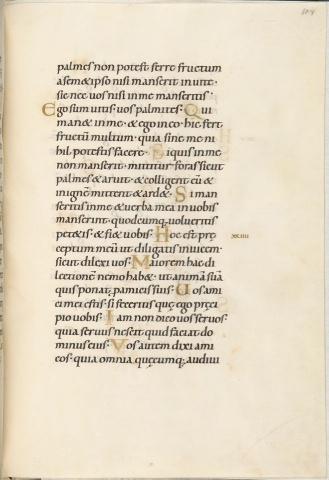 palmes non potest ferre fructum
a semetipso nisi manserit in vite ·
sic nec vos nisi in me manseritis ·
Ego sum vitis · vos palmites · Qui
man& in me · & ego in eo · hic fert
fructū multum · quia sine me ni
hil potestis facere · Si quis in me
non manserit · mittetur foras sicut
palmes & aruit · & colligent eū &
in ignē mittent & ard& · Si man
seritis in me & verba mea in vobis
manserint · quodcumq; volueritis
pet&is · & fi& vobis · Hoc est prę
ceptum meū ut diligatis invicem ·
sicut dilexi vos · Maiorem hac di
lectionē nemo hab& · ut animā suā
quis ponat p amicis suis · Vos ami
ci mei estis · si feceritis quę ego pręci
pio vobis · Iam non dico vos servos ·
quia servus nescit quid faciat do
minus eius · Vos autem dixi ami
cos · quia omnia quęcumq; audivi